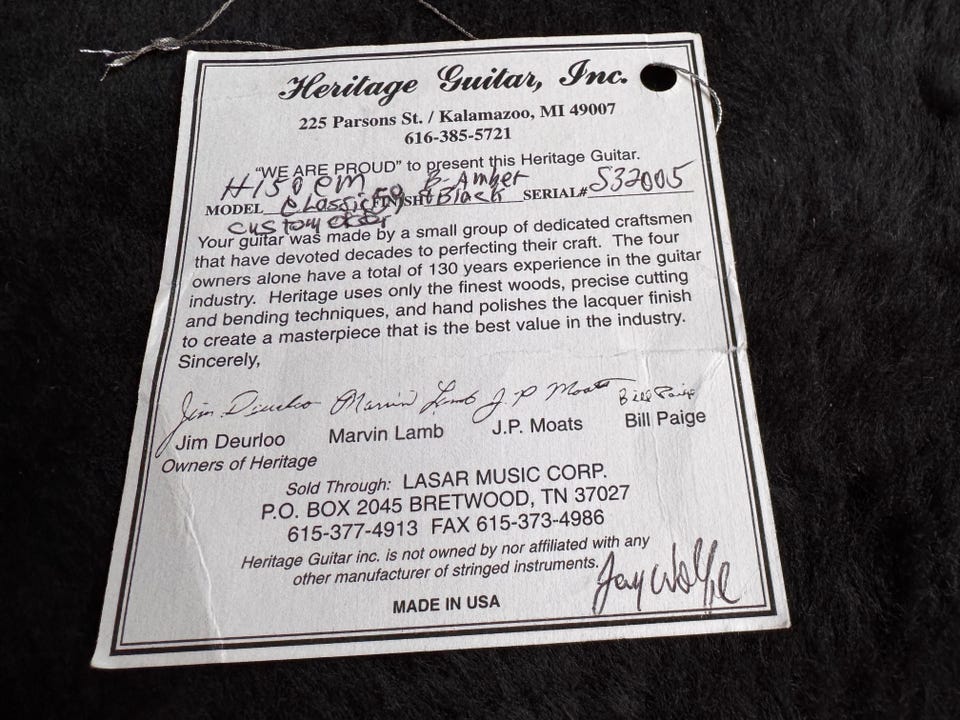 Heritage Guitar, Inc.
225 Parsons St. / Kalamazoo, MI 49007
616-385-5721
"WE ARE PROUD" to present this Heritage Guitar.
H150 CM B-Amber
MODEL Classic 59 FINISH + Black SERIAL# S32005
custom order
Your guitar was made by a small group of dedicated craftsmen
that have devoted decades to perfecting their craft. The four
owners alone have a total of 130 years experience in the guitar
industry. Heritage uses only the finest woods, precise cutting
and bending techniques, and hand polishes the lacquer finish
to create a masterpiece that is the best value in the industry.
Sincerely,
Jim Deurloo Marvin Lamb J. P Moats Bill Paige
Jim Deurloo Marvin Lamb J.P. Moats Bill Paige
Owners of Heritage
Sold Through: LASAR MUSIC CORP.
P.O. BOX 2045 BRETWOOD, TN 37027
615-377-4913 FAX 615-373-4986
Heritage Guitar inc. is not owned by nor affiliated with any
other manufacturer of stringed instruments.
Jay Wolfe
MADE IN USA